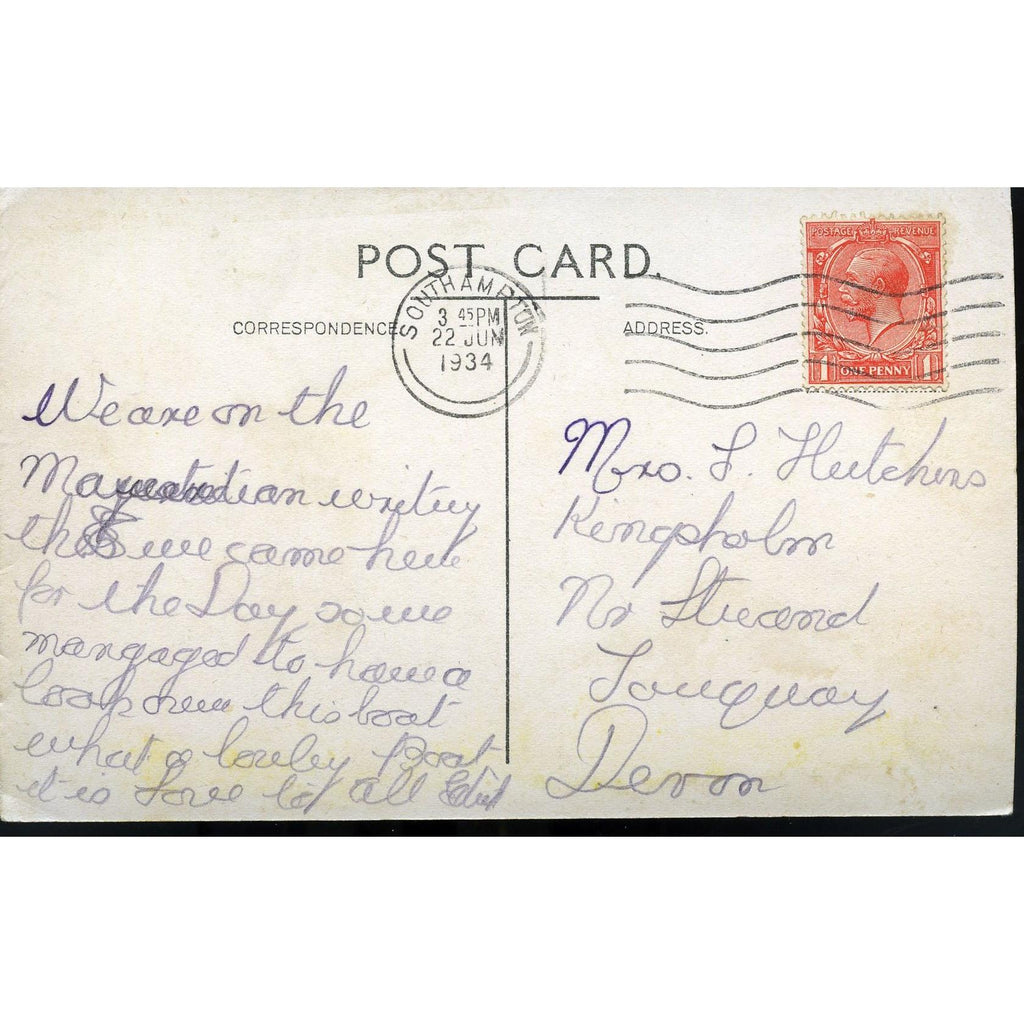 POST CARD.
SOUTHAMPTON
3 45PM
22 JUN
1934
CORRESPONDENCE
ADDRESS.
POSTAGE REVENUE
1 ONE PENNY 1
We are on the
writing
this we came here
for the Day so we
mangaged to have a
look over this boat
what a lovley Boat
it is Love to all
Mrs.
Hutchins
Kingsholm
Nr Strand
Torquay
Devon